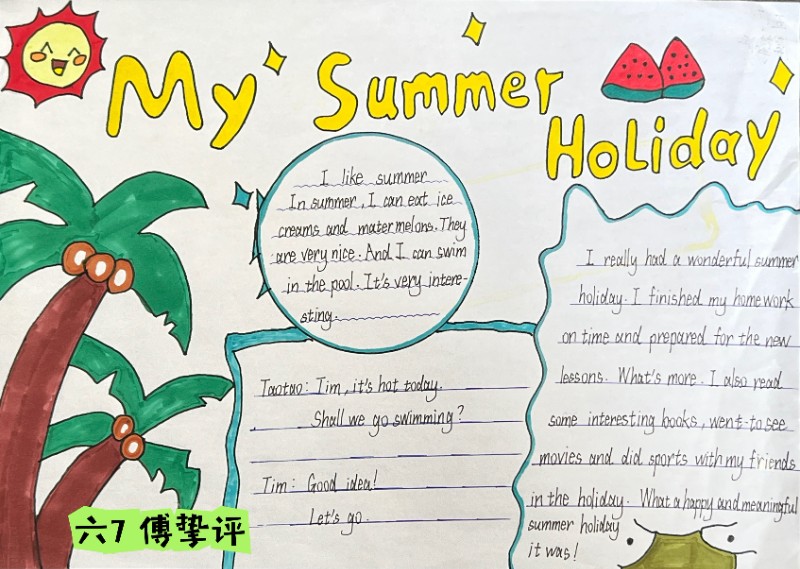 My Summer
Holiday
I like summer
In summer, I can eat ice
creams and matermelons. They
are very nice. And I can swim
in the pool. It's very intere-
sting.
Taotao: Tim, it's hot today.
Shall we go swimming?
Tim: Good idea!
Let's go.
I really had a wonderful summer
holiday. I finished my homework
on time and prepared for the new
lessons. What's more. I also read
some interesting books, went to see
movies and did sports with my friends
in the holiday. What a happy and meaningful
summer holiday
it was!
六7 傅挚评